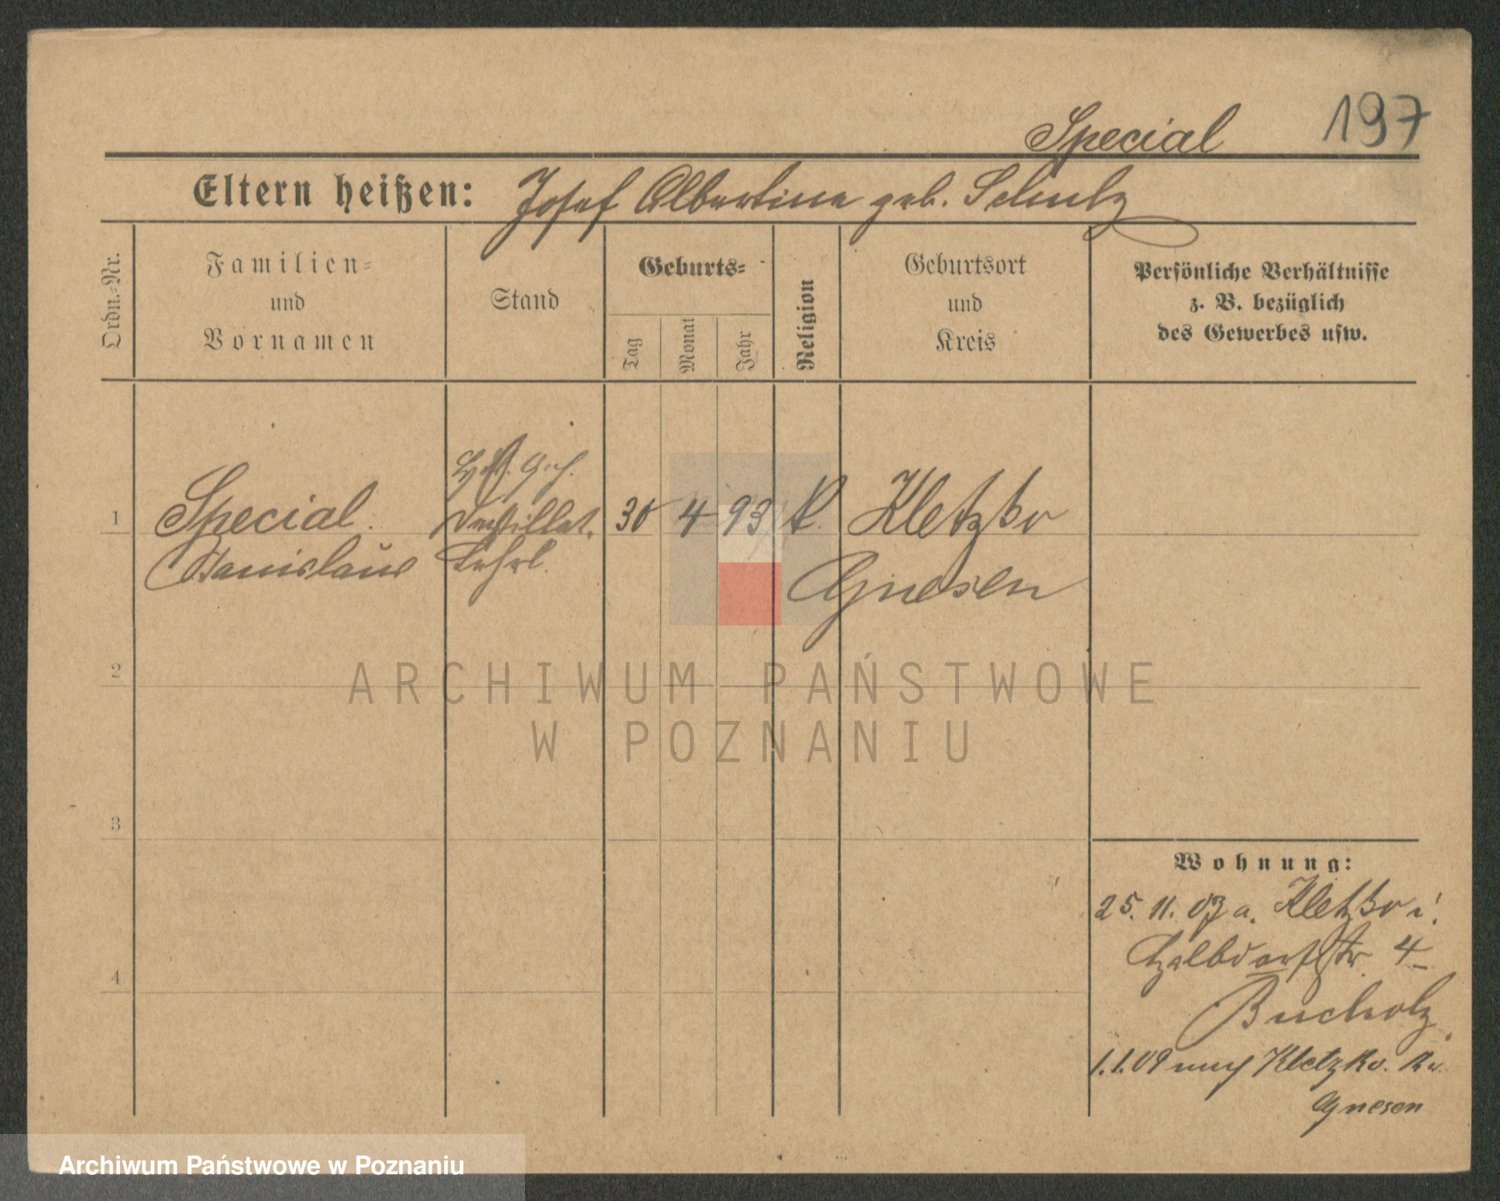 197
Special
Eltern heißen: Josef Albertine geb. Schulz
Ordn.-Nr.
Familien-
und
Vornamen
Stand
Geburts-
Tag
Monat
Jahr
Religion
Geburtsort
und
Kreis
Persönliche Verhältnisse
z. B. bezüglich
des Gewerbes usw.
1
Special.
Stanislaus
Destillat.
Lehrl.
30 4 93 k.
Kletzko
Gnesen
2
3
4
ARCHIWUM PAŃSTWOWE
W POZNANIU
Wohnung:
25. 11. 07 a. Kletzko i.
Halbdorfstr. 4
Bucholz
1.1.09 nach Kletzko. Kr.
Gnesen
Archiwum Państwowe w Poznaniu